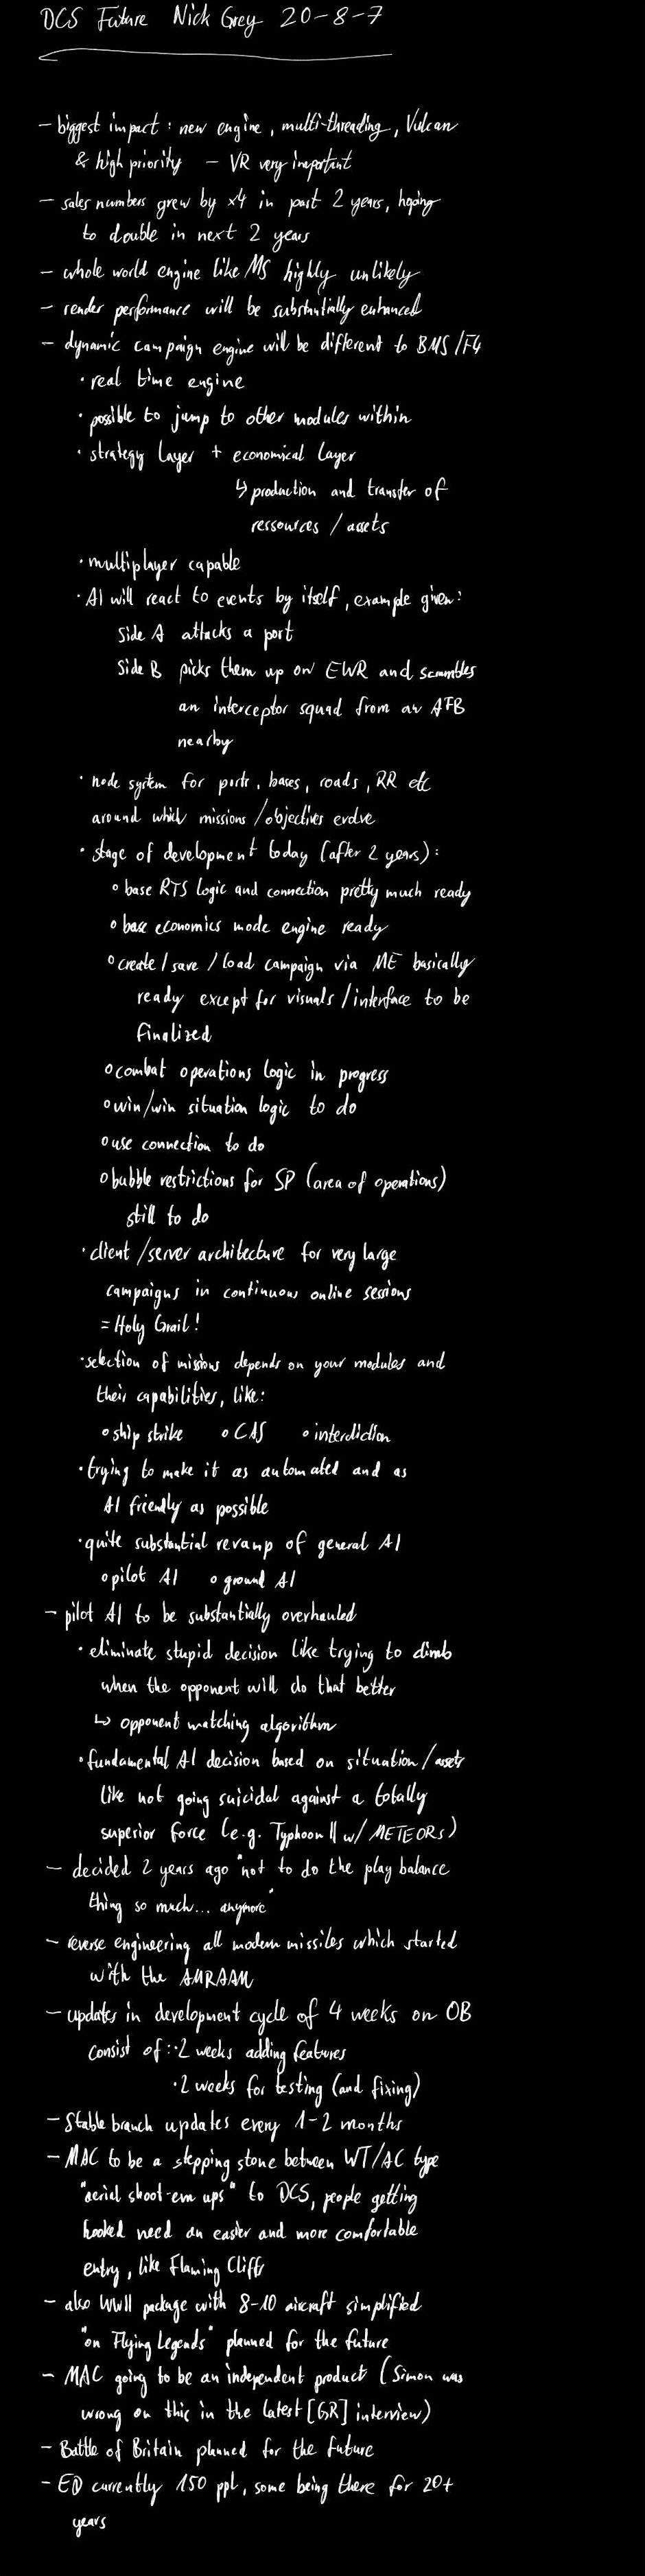 DCS Future Nick Grey 20-8-7
- biggest impact: new engine, multi-threading, Vulcan
& high priority - VR very important
- sales numbers grew by x4 in past 2 years, hoping
to double in next 2 years
- whole world engine like MS highly unlikely
- render performance will be substantially enhanced
- dynamic campaign engine will be different to BMS/F4
· real time engine
· possible to jump to other modules within
· strategy layer + economical layer
↳ production and transfer of
ressources / assets
· multiplayer capable
· AI will react to events by itself, example given:
Side A attacks a port
Side B picks them up on EWR and scrambles
an interceptor squad from an AFB
nearby
· node system for ports, bases, roads, RR etc
around which missions/objectives evolve
· stage of development today (after 2 years):
o base RTS logic and connection pretty much ready
o base economics mode engine ready
o create / save / load campaign via ME basically
ready except for visuals/interface to be
finalized
o combat operations logic in progress
o win/win situation logic to do
o use connection to do
o bubble restrictions for SP (area of operations)
still to do
· client/server architecture for very large
campaigns in continuous online sessions
= Holy Grail!
· selection of missions depends on your modules and
their capabilities, like:
o ship strike o CAS o interdiction
· trying to make it as automated and as
AI friendly as possible
· quite substantial revamp of general AI
o pilot AI o ground AI
- pilot AI to be substantially overhauled
· eliminate stupid decision like trying to climb
when the opponent will do that better
↳ opponent matching algorithm
· fundamental AI decision based on situation/assets
like not going suicidal against a totally
superior force (e.g. Typhoon II w/ METEORs)
- decided 2 years ago "not to do the play balance
thing so much... anymore"
- reverse engineering all modern missiles which started
with the AMRAAM
- updates in development cycle of 4 weeks on OB
consist of: · 2 weeks adding features
· 2 weeks for testing (and fixing)
- Stable branch updates every 1-2 months
- MAC to be a stepping stone between WT/AC type
"aerial shoot-em ups" to DCS, people getting
hooked need an easier and more comfortable
entry, like Flaming Cliffs
- also WWII package with 8-10 aircraft simplified
"on Flying Legends" planned for the future
- MAC going to be an independent product (Simon was
wrong on this in the latest [GR] interview)
- Battle of Britain planned for the future
- ED currently 150 ppl, some being there for 20+
years